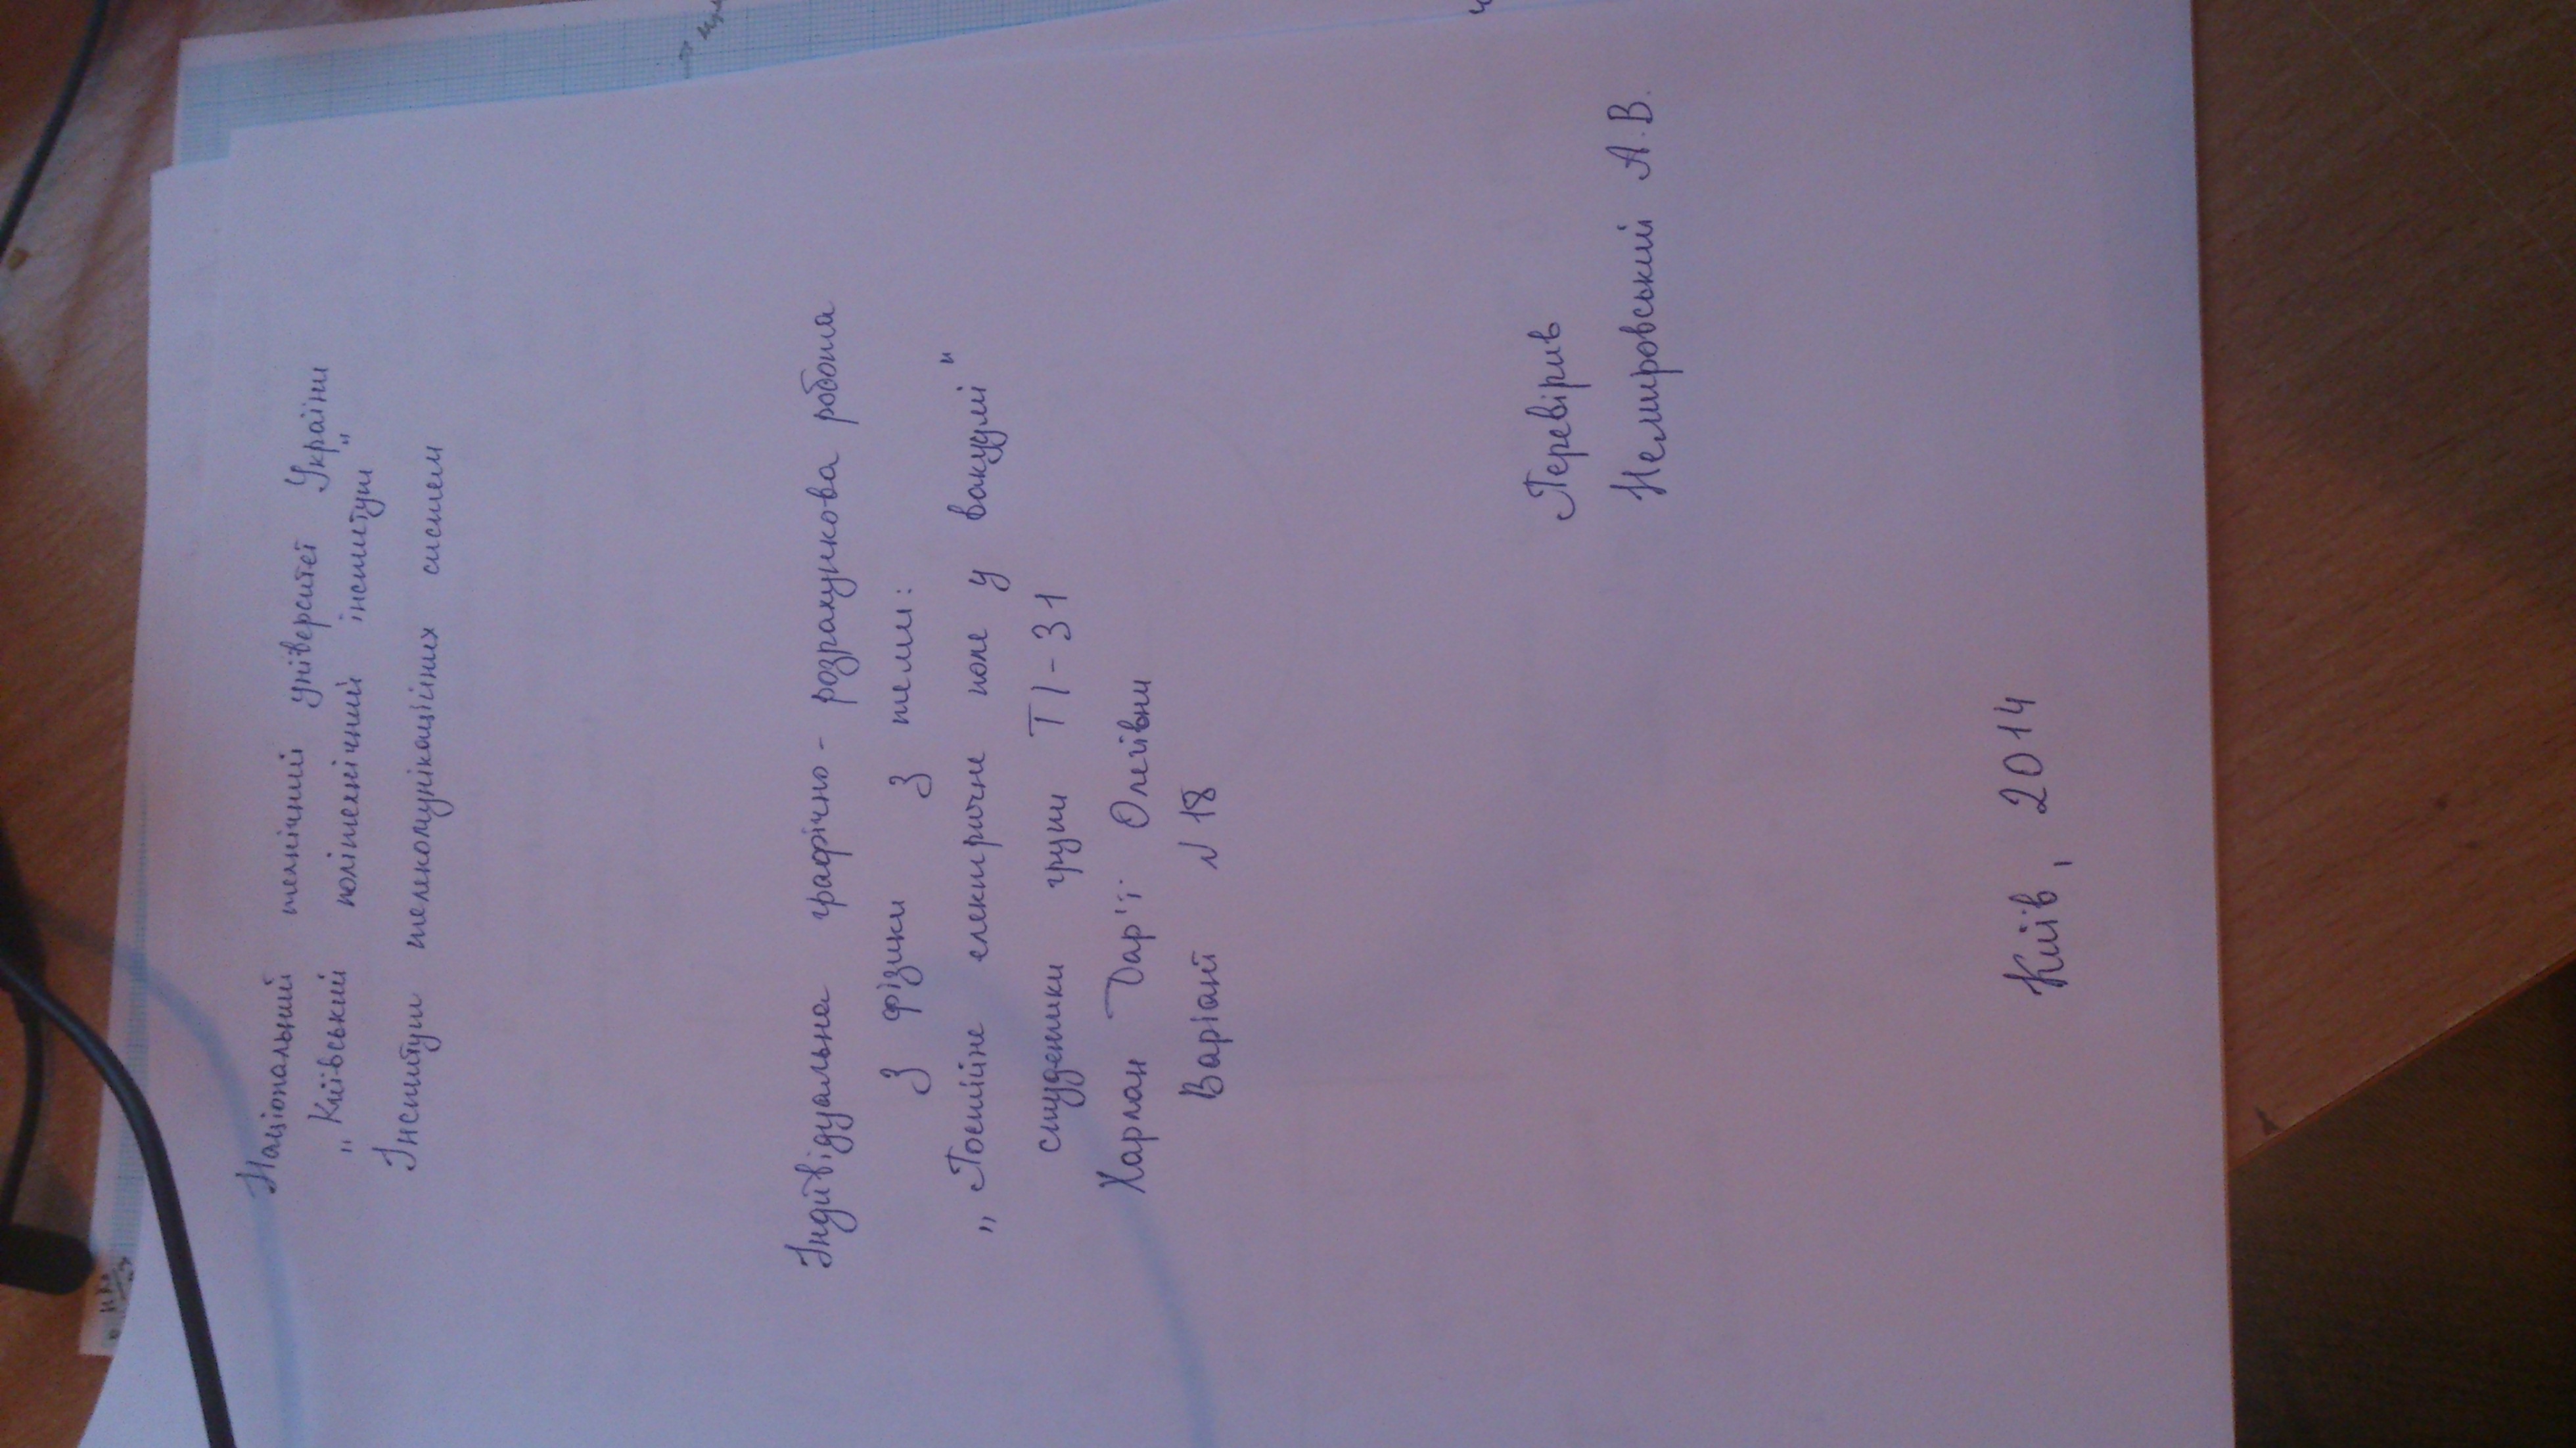 Національний технічний університет України
„Київський політехнічний інститут"
Інститут телекомунікаційних систем
Індивідуальна графічно - розрахункова робота
з фізики з теми:
„Постійне електричне поле у вакуумі"
студентки групи ТІ-31
Харлан Дар'ї Олегівни
Варіант №18
Перевірив
Немировський А.В.
Київ, 2014